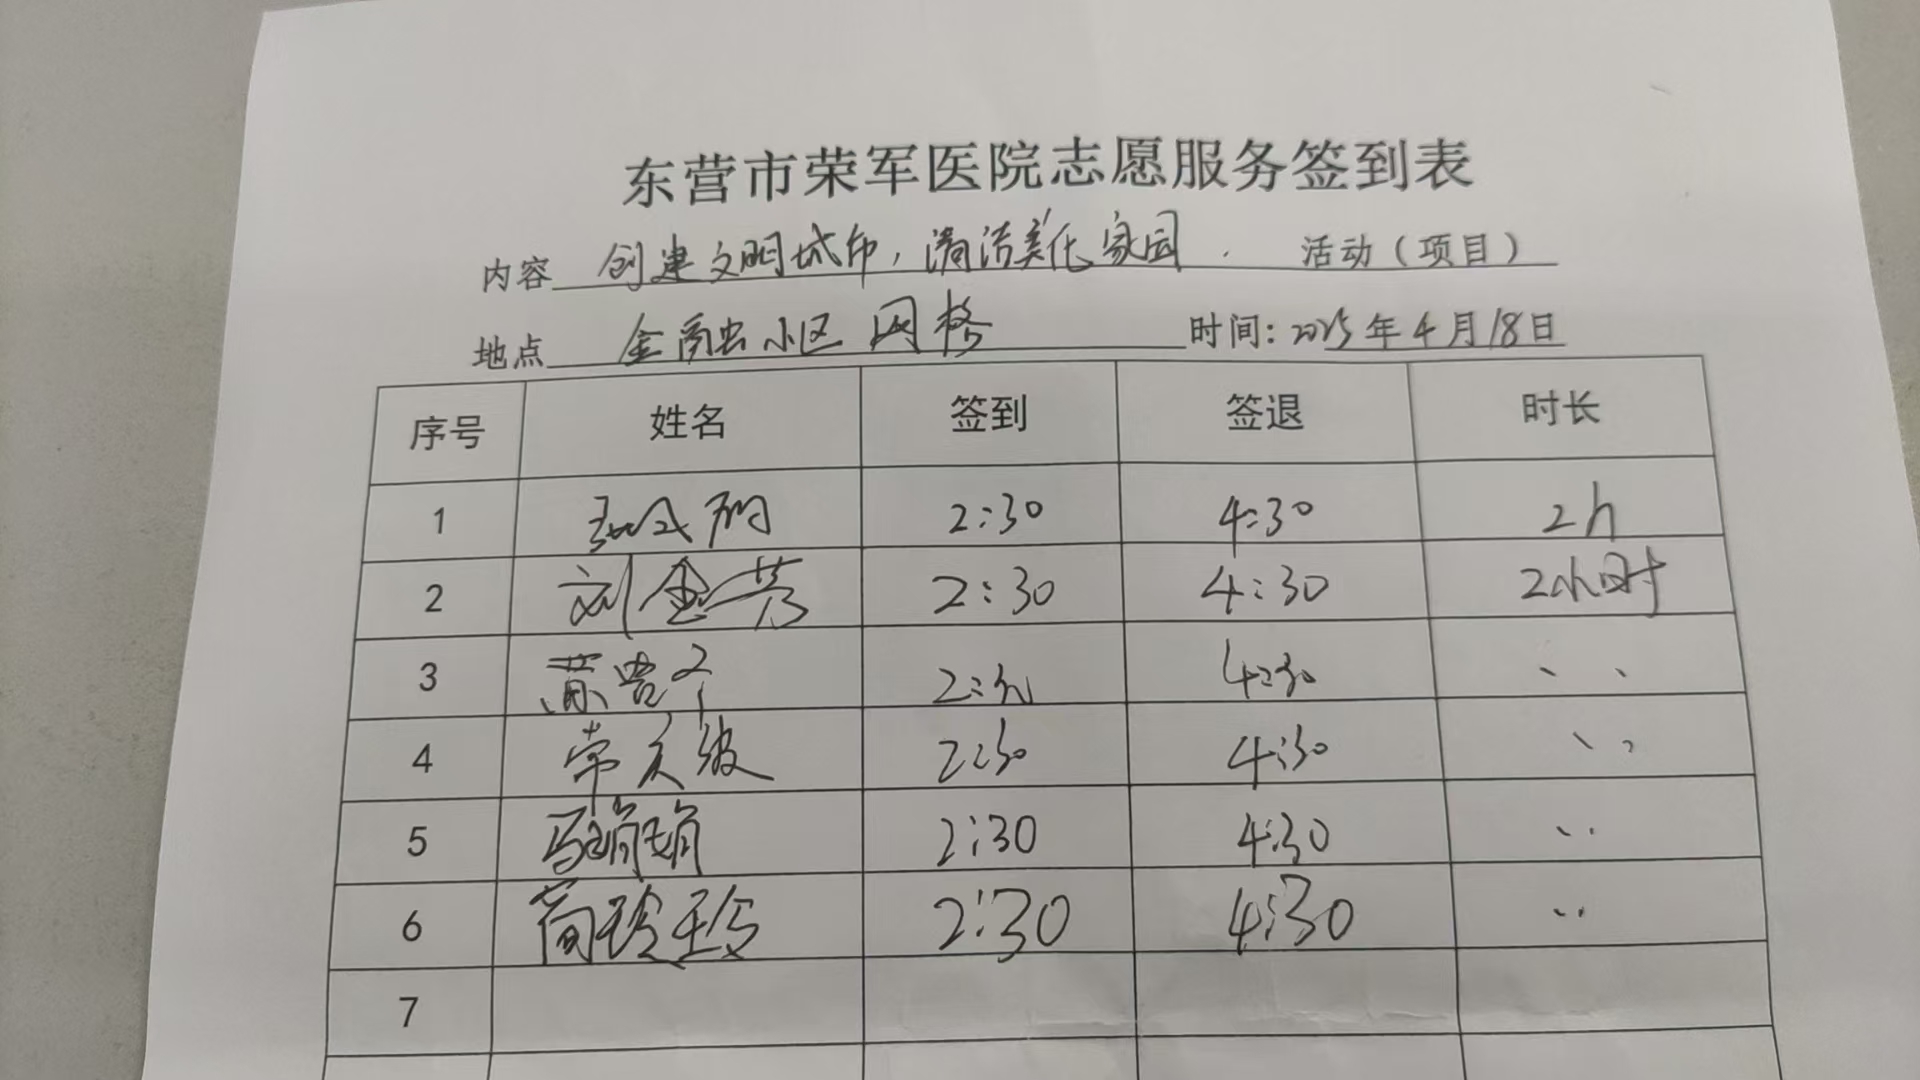 东营市荣军医院志愿服务签到表
内容 创建文明城市，清洁美化家园. 活动（项目）
地点 金融小区网格 时间：2025年4月18日
序号 姓名 签到 签退 时长
1 2:30 4:30 2h
2 刘金芳 2:30 4:30 2小时
3 2:30 4:30 、、
4 常 2:30 4:30 、、
5 马娟娟 2:30 4:30 、、
6 简玲玲 2:30 4:30 、、
7